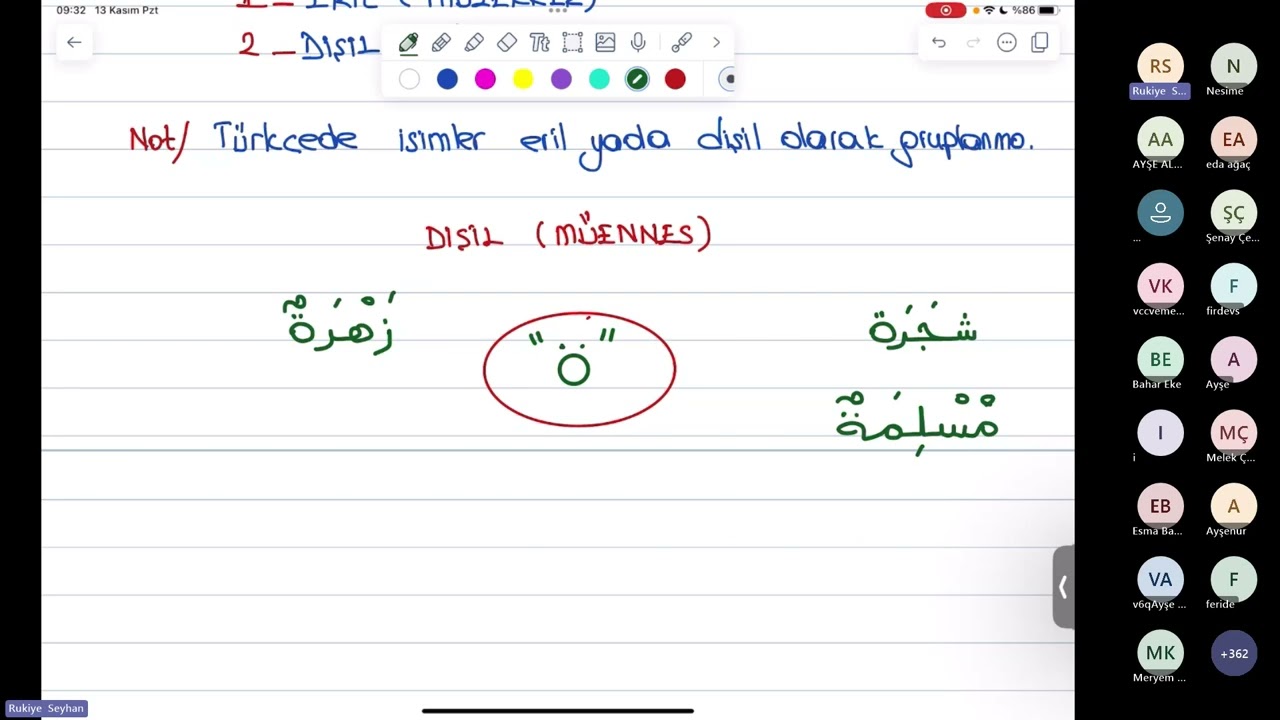 09:32 13 Kasım Pzt
%86
2 – DİŞİL
Not/ Türkcede isimler eril yada dişil olarak gruplanma.
DIŞIL (MÜENNES)
زَهْرَةٌ
"ة"
شَجَرَة
مْسْلِمَةٌ
RS
Rukiye S...
N
Nesime
AA
AYŞE AL...
EA
eda ağaç
...
ŞÇ
Şenay Çe...
VK
vccveme...
F
firdevs
BE
Bahar Eke
A
Ayşe
I
i
MÇ
Melek Ç...
EB
Esma Ba...
A
Ayşenur
VA
v6qAyşe ...
F
feride
MK
Meryem ...
+362
Rukiye Seyhan